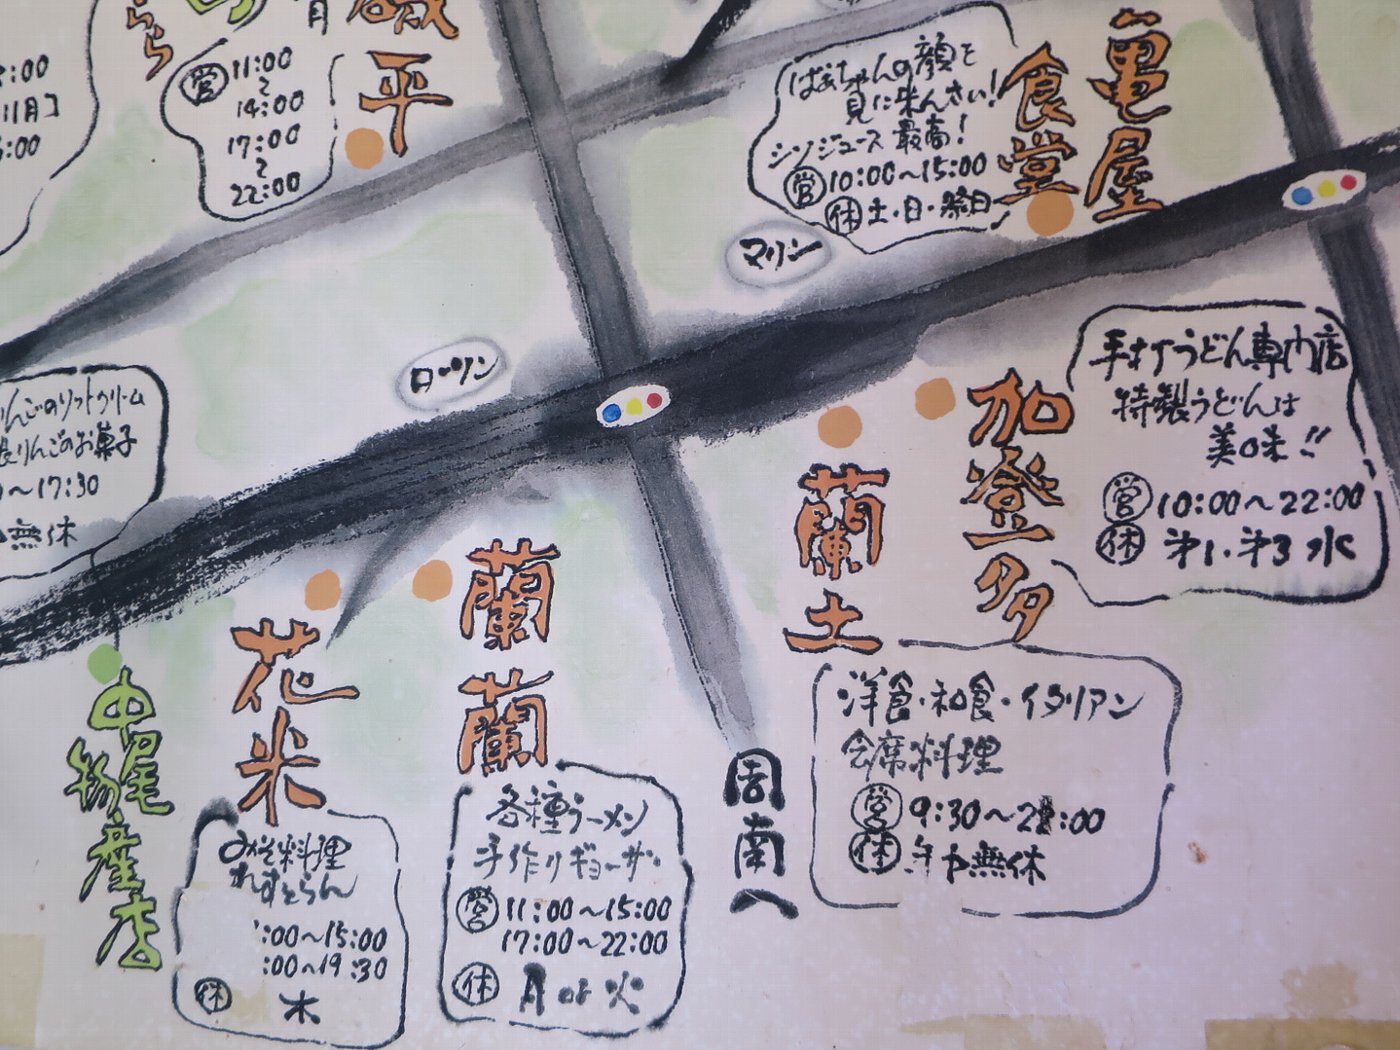 磯平
営 11:00
〜
14:00
17:00
〜
22:00
:00
11月]
:00
亀屋
食堂
ばあちゃんの顔を
見に来んさい!
シソジュース 最高!
営 10:00〜15:00
休 土・日・祭日
マリン
ローソン
りんごのソフトクリーム
りんごのお菓子
〜17:30
無休
手打うどん専門店
特製うどんは
美味!!
営 10:00〜22:00
休 第1・第3 水
加登多
蘭土
洋食・和食・イタリアン
会席料理
営 9:30〜21:00
休 年中無休
周南へ
蘭蘭
各種ラーメン
手作りギョーザ
営 11:00〜15:00
17:00〜22:00
休 月 or 火
花米
みそ料理
れすとらん
:00〜15:00
:00〜19:30
休 木
中尾
物産店